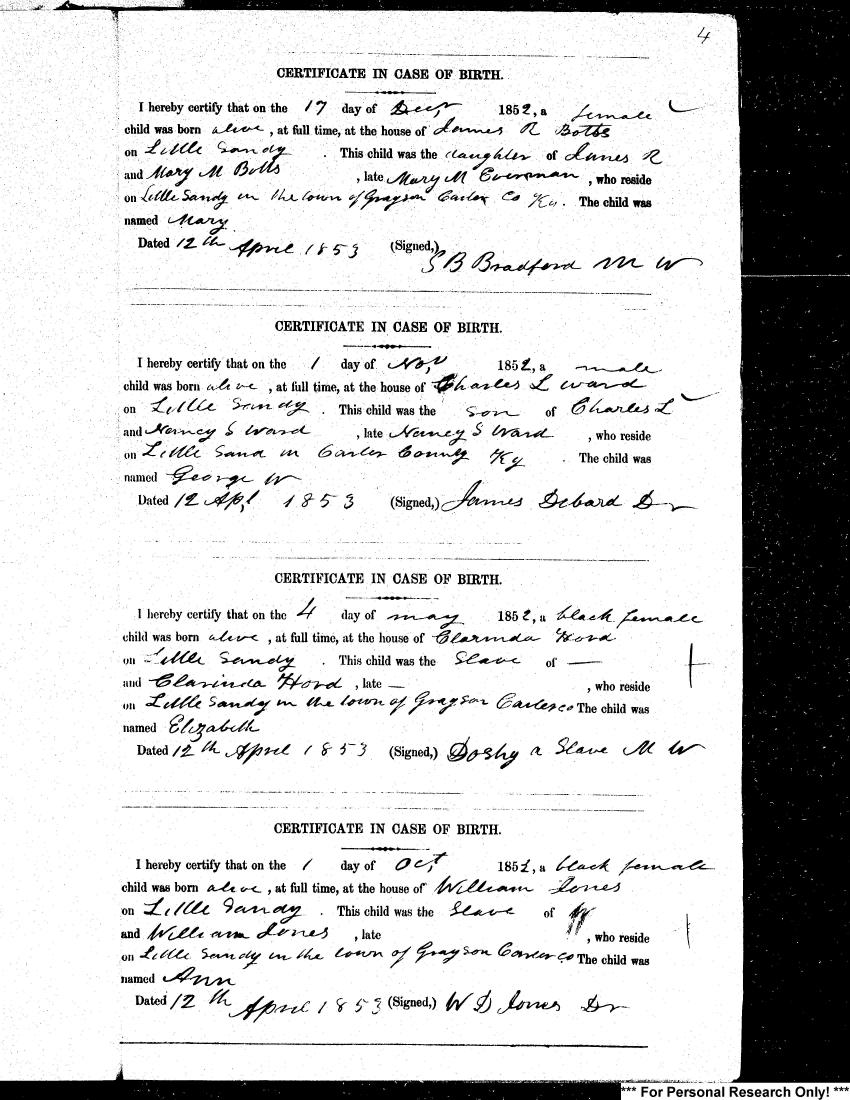 4
CERTIFICATE IN CASE OF BIRTH.
I hereby certify that on the 17 day of Decr 1852, a female
child was born alive, at full time, at the house of James R Botts
on Little Sandy . This child was the daughter of James R
and Mary M Botts , late Mary M Everman , who reside
on Little Sandy in the town of Grayson Carter Co Ky. The child was
named Mary
Dated 12th April 1853 (Signed,)
S B Bradford M W
CERTIFICATE IN CASE OF BIRTH.
I hereby certify that on the 1 day of Nov 1852, a male
child was born alive , at full time, at the house of Charles L Ward
on Little Sandy . This child was the son of Charles L
and Nancy S Ward , late Nancy S Ward , who reside
on Little Sand in Carter County Ky . The child was
named George W
Dated 12 Apl 1853 (Signed,) James Debard Dr
CERTIFICATE IN CASE OF BIRTH.
I hereby certify that on the 4 day of may 1852, a black female
child was born alive , at full time, at the house of Clarinda Hord
on Little Sandy . This child was the Slave of —
and Clarinda Hord , late — , who reside
on Little Sandy in the town of Grayson Carter co The child was
named Elizabeth
Dated 12th April 1853 (Signed,) Doshy a Slave M W
CERTIFICATE IN CASE OF BIRTH.
I hereby certify that on the 1 day of Oct, 1852, a black female
child was born alive , at full time, at the house of William Jones
on Little Sandy . This child was the Slave of
and William Jones , late , who reside
on Little Sandy in the town of Grayson Carter Co The child was
named Ann
Dated 12th April 1853 (Signed,) W D Jones Dr
*** For Personal Research Only! ***